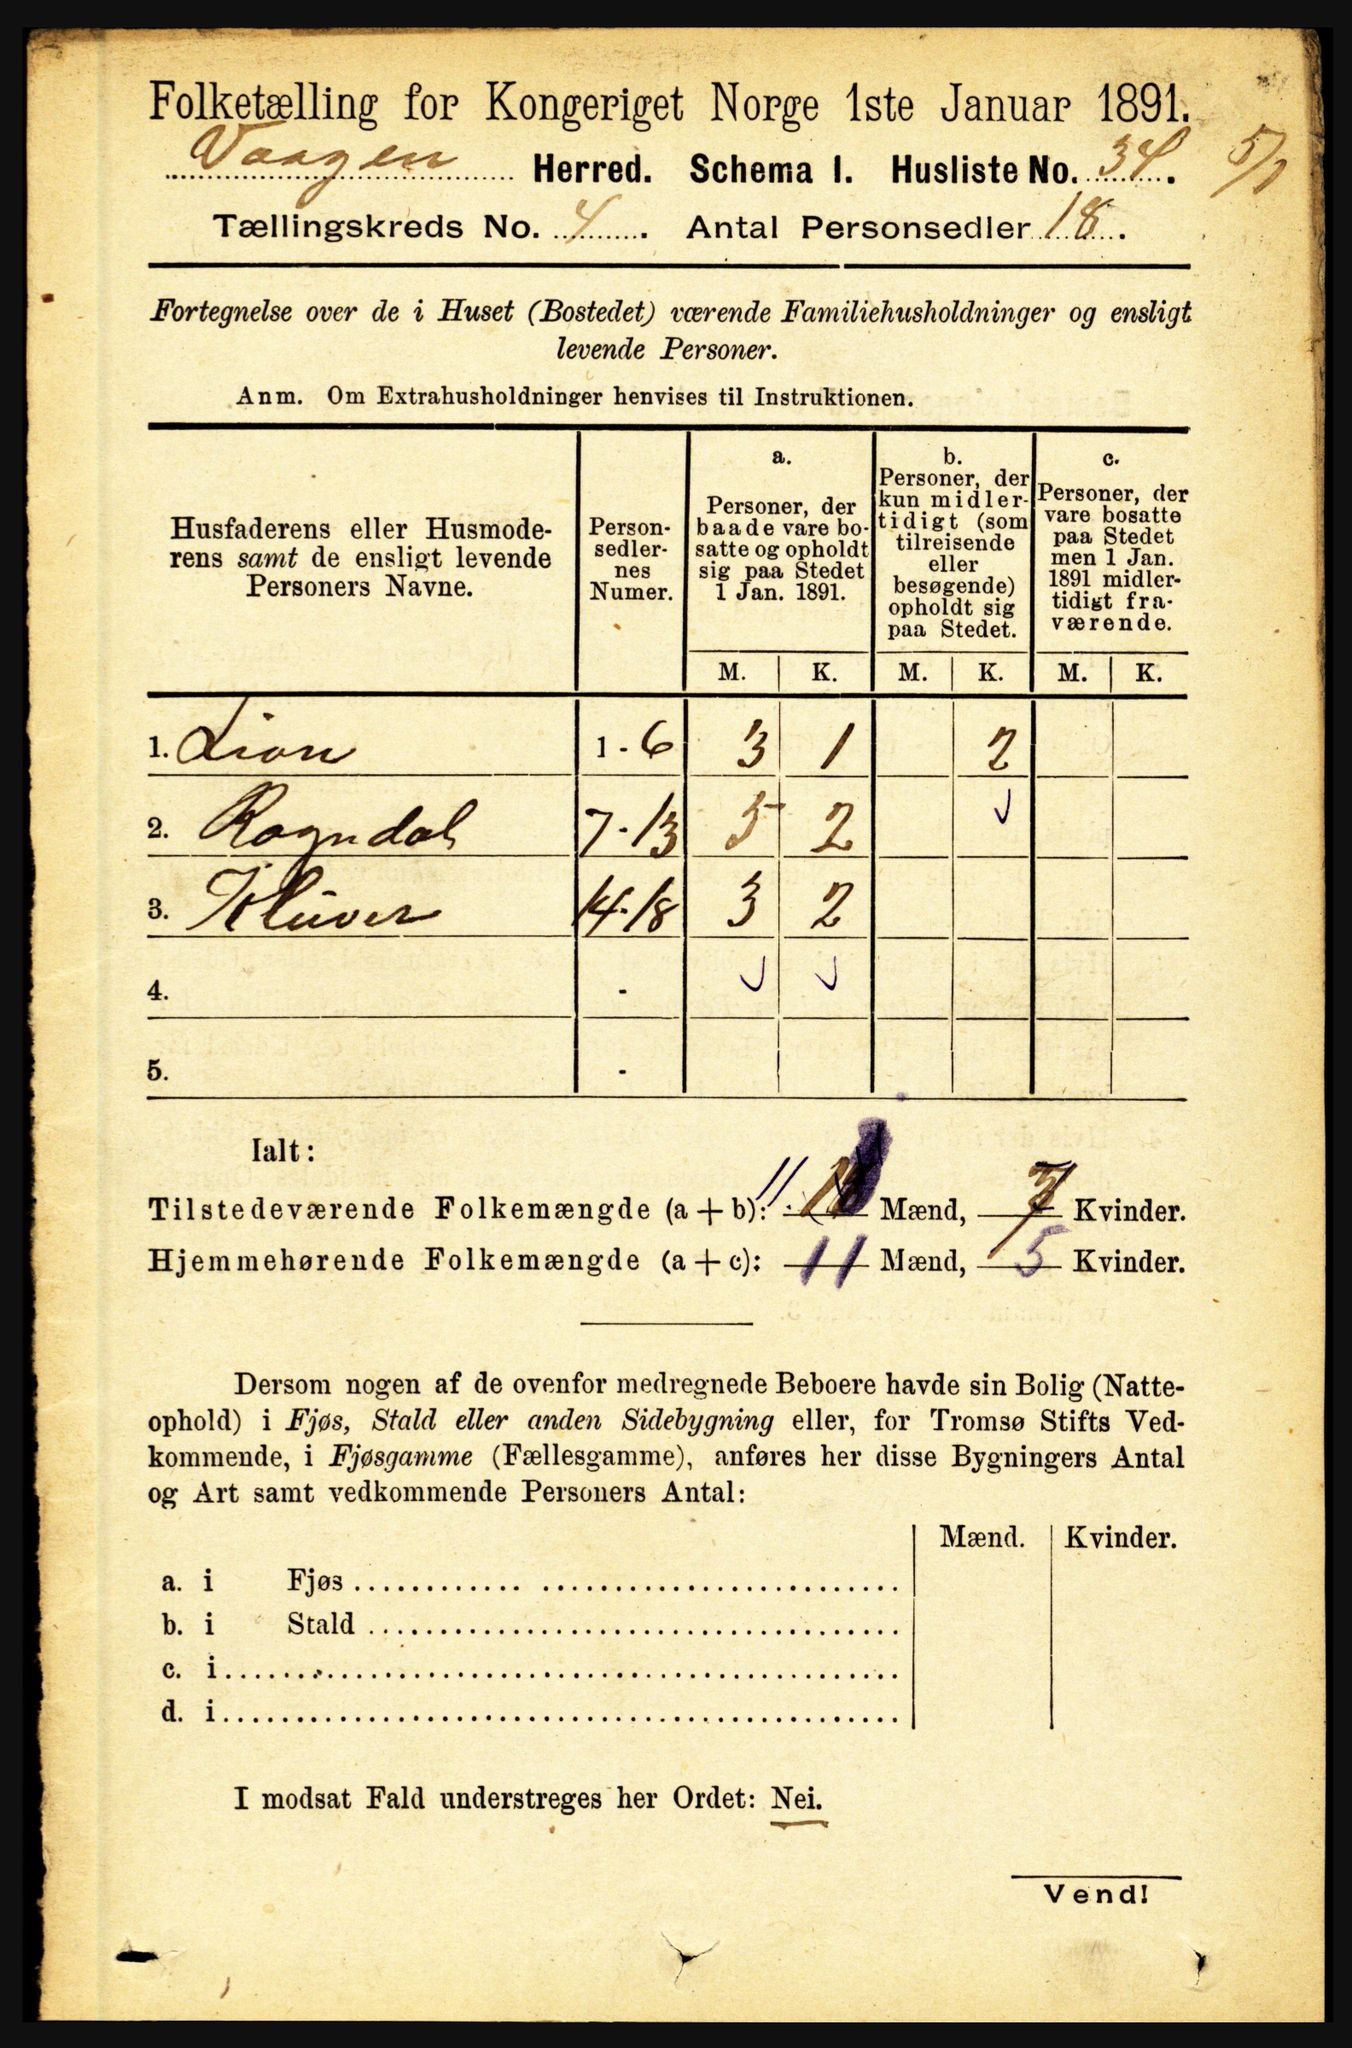 Folketælling for Kongeriget Norge 1ste Januar 1891.
Vaagen Herred. Schema I. Husliste No. 34. 5/1
Tællingskreds No. 4. Antal Personsedler 18.
Fortegnelse over de i Huset (Bostedet) værende Familiehusholdninger og ensligt
levende Personer.
Anm. Om Extrahusholdninger henvises til Instruktionen.
Husfaderens eller Husmode-
rens samt de ensligt levende
Personers Navne.
Person-
sedler-
nes
Numer.
a.
Personer, der
baade vare bo-
satte og opholdt
sig paa Stedet
1 Jan. 1891.
b.
Personer, der
kun midler-
tidigt (som
tilreisende
eller
besøgende)
opholdt sig
paa Stedet.
c.
Personer, der
vare bosatte
paa Stedet
men 1 Jan.
1891 midler-
tidigt fra-
værende.
M. K. M. K. M. K.
1. Lion 1 - 6 3 1 2
2. Rogndal 7 - 13 5 2
3. Klüver 14 - 18 3 2
4. -
5. -
Ialt:
Tilstedeværende Folkemængde (a + b): 11 Mænd, 7 Kvinder.
Hjemmehørende Folkemængde (a + c): 11 Mænd, 5 Kvinder.
Dersom nogen af de ovenfor medregnede Beboere havde sin Bolig (Natte-
ophold) i Fjøs, Stald eller anden Sidebygning eller, for Tromsø Stifts Ved-
kommende, i Fjøsgamme (Fællesgamme), anføres her disse Bygningers Antal
og Art samt vedkommende Personers Antal:
Mænd. Kvinder.
a. i Fjøs
b. i Stald
c. i
d. i
I modsat Fald understreges her Ordet: Nei.
Vend!